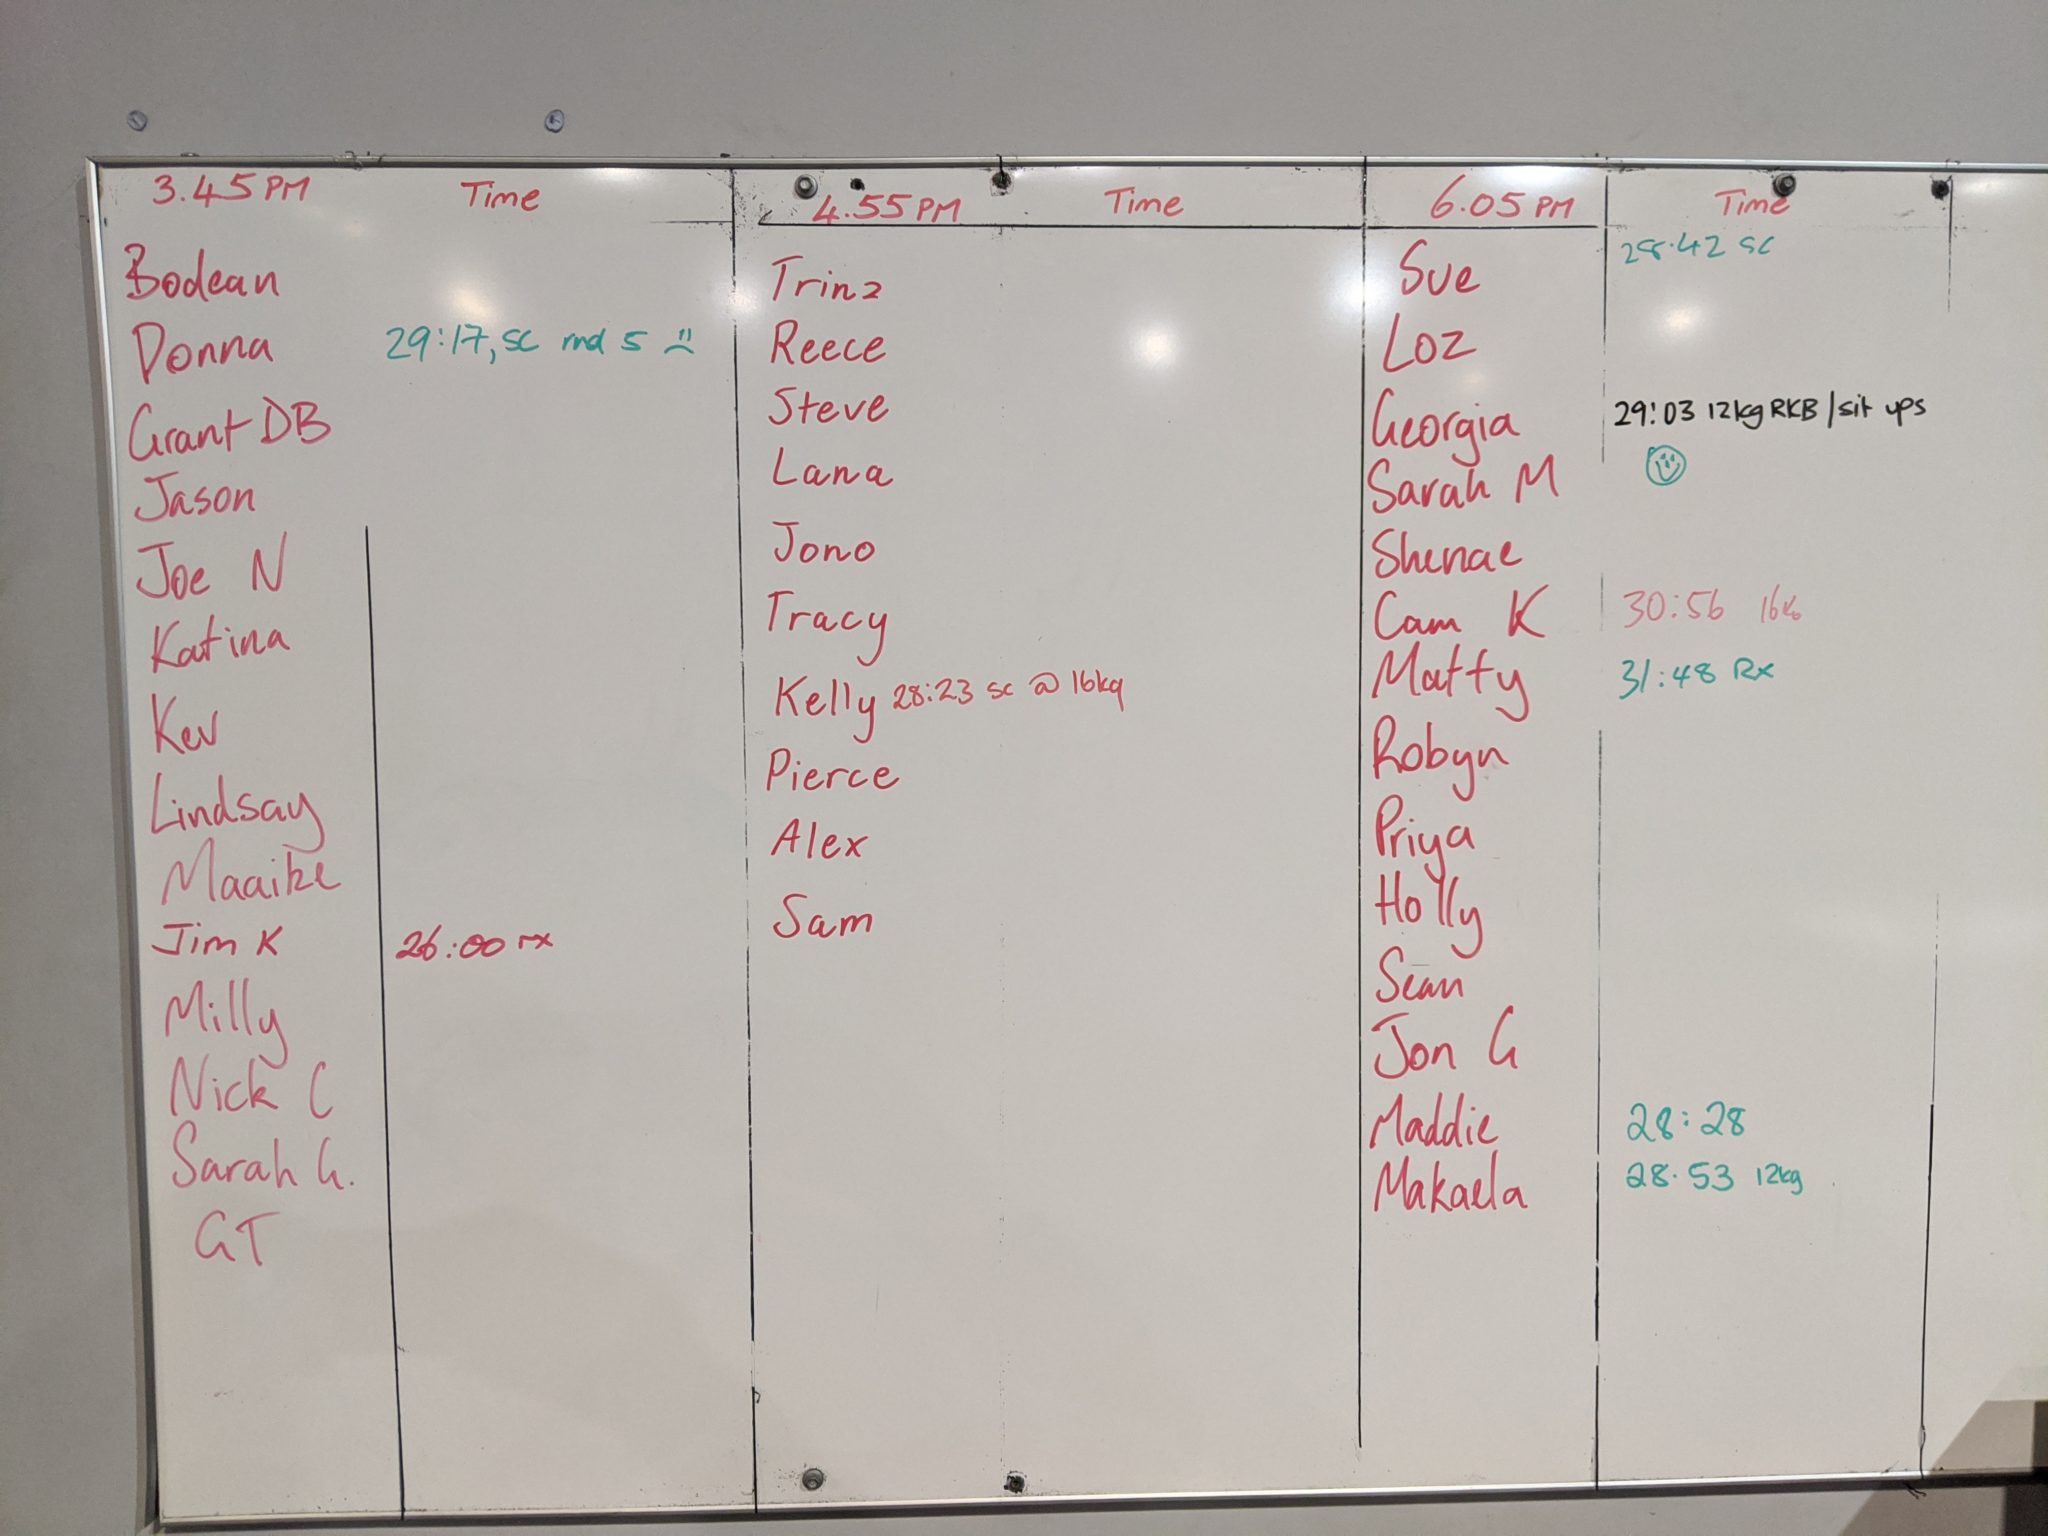 3.45PM Time
Bodean
Donna 29:17, sc rnd 5
Grant DB
Jason
Joe N
Katina
Kev
Lindsay
Maaike
Jim K 26:00 rx
Milly
Nick C
Sarah G.
GT
4.55PM Time
Trinz
Reece
Steve
Lana
Jono
Tracy
Kelly 28:23 sc @ 16kg
Pierce
Alex
Sam
6.05PM Time
Sue 28.42 sc
Loz
Georgia 29:03 12kg RKB/sit ups
Sarah M
Shenae
Cam K 30:56 16kg
Matty 31:48 Rx
Robyn
Priya
Holly
Sean
Jon G
Maddie 28:28
Makaela 28.53 12kg